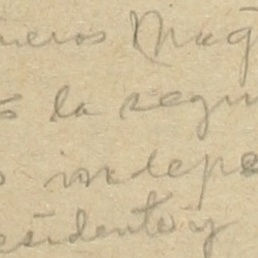 neros Mag
s la segu
o indepe
esidente y